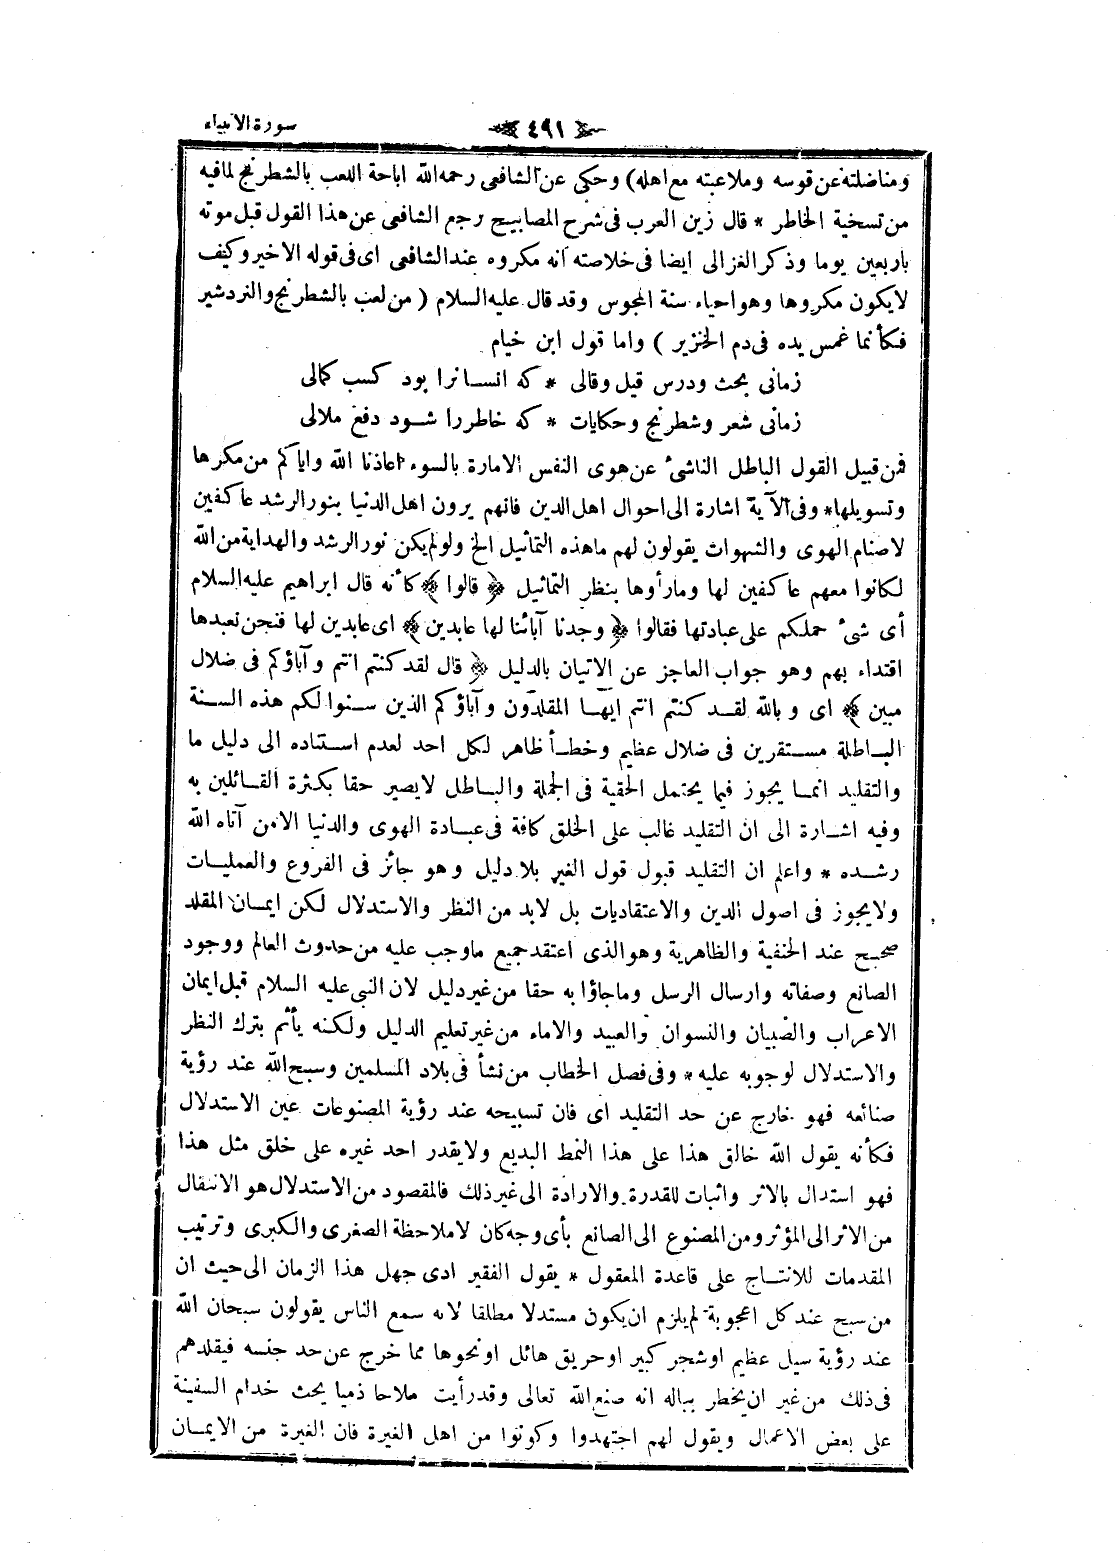 سورة الانبياء
﴿ ٤٩١ ﴾
ومناضلته عن قوسه وملاعبته مع اهله) وحكى عن الشافعى رحمه الله اباحة اللعب بالشطرنج لمافيه
من تسخية الخاطر * قال زين العرب فى شرح المصابيح رجع الشافعى عن هذا القول قبل موته
باربعين يوما وذكر الغزالى ايضا فى خلاصته انه مكروه عند الشافعى اى فى قوله الاخير وكيف
لا يكون مكروها وهو احياء سنة المجوس وقد قال عليه السلام ( من لعب بالشطرنج والنردشير
فكأنما غمس يده فى دم الخنزير ) واما قول ابن خيام
زمانى بحث ودرس قيل وقالى * كه انسانرا بود كسب كمالى
زمانى شعر وشطرنج وحكايات * كه خاطررا شود دفع ملالى
فمن قبيل القول الباطل الناشئ عن هوى النفس الامارة بالسوء اعاذنا الله واياكم من مكرها
وتسويلها * وفى الآية اشارة الى احوال اهل الدين فانهم يرون اهل الدنيا بنور الرشد عاكفين
لاصنام الهوى والشهوات يقولون لهم ما هذه التماثيل الخ ولو لم يكن نور الرشد والهداية من الله
لكانوا معهم عاكفين لها وما رأوها بنظر التماثيل ﴿ قالوا ﴾ كأنه قال ابراهيم عليه السلام
أى شئ حملكم على عبادتها فقالوا ﴿ وجدنا آبائنا لها عابدين ﴾ اى عابدين لها فنحن نعبدها
اقتداء بهم وهو جواب العاجز عن الاتيان بالدليل ﴿ قال لقد كنتم انتم وآباؤكم فى ضلال
مبين ﴾ اى وبالله لقد كنتم انتم ايها المقلدون وآباؤكم الذين سنوا لكم هذه السنة
الباطلة مستقرين فى ضلال عظيم وخطأ ظاهر لكل احد لعدم استناده الى دليل ما
والتقليد انما يجوز فيما يحتمل الحقية فى الجملة والباطل لا يصير حقا بكثرة القائلين به
وفيه اشارة الى ان التقليد غالب على الخلق كافة فى عبادة الهوى والدنيا الا من آتاه الله
رشده * واعلم ان التقليد قبول قول الغير بلا دليل وهو جائز فى الفروع والعمليات
ولا يجوز فى اصول الدين والاعتقاديات بل لابد من النظر والاستدلال لكن ايمان المقلد
صحيح عند الحنفية والظاهرية وهو الذى اعتقد جميع ما وجب عليه من حدوث العالم ووجود
الصانع وصفاته وارسال الرسل وماجاؤا به حقا من غير دليل لان النبى عليه السلام قبل ايمان
الاعراب والصبيان والنسوان والعبيد والاماء من غير تعليم الدليل ولكنه يأثم بترك النظر
والاستدلال لوجوبه عليه * وفى فصل الخطاب من نشأ فى بلاد المسلمين وسبح الله عند رؤية
صنائعه فهو خارج عن حد التقليد اى فان تسبيحه عند رؤية المصنوعات عين الاستدلال
فكأنه يقول الله خالق هذا على هذا النمط البديع ولا يقدر احد غيره على خلق مثل هذا
فهو استدال بالاثر واثبات للقدرة والارادة الى غير ذلك فالمقصود من الاستدلال هو الانتقال
من الاثر الى المؤثر ومن المصنوع الى الصانع بأى وجه كان لا ملاحظة الصغرى والكبرى وترتيب
المقدمات للانتاج على قاعدة المعقول * يقول الفقير ادى جهل هذا الزمان الى حيث ان
من سبح عند كل اعجوبة لم يلزم ان يكون مستدلا مطلقا لانه سمع الناس يقولون سبحان الله
عند رؤية سيل عظيم او شجر كبير او حريق هائل او نحوها مما خرج عن حد جنسه فيقلدهم
فى ذلك من غير ان يخطر بباله انه صنع الله تعالى وقد رأيت ملاحا ذميا يحث خدام السفينة
على بعض الاعمال ويقول لهم اجتهدوا وكونوا من اهل الغيرة فان الغيرة من الايمان